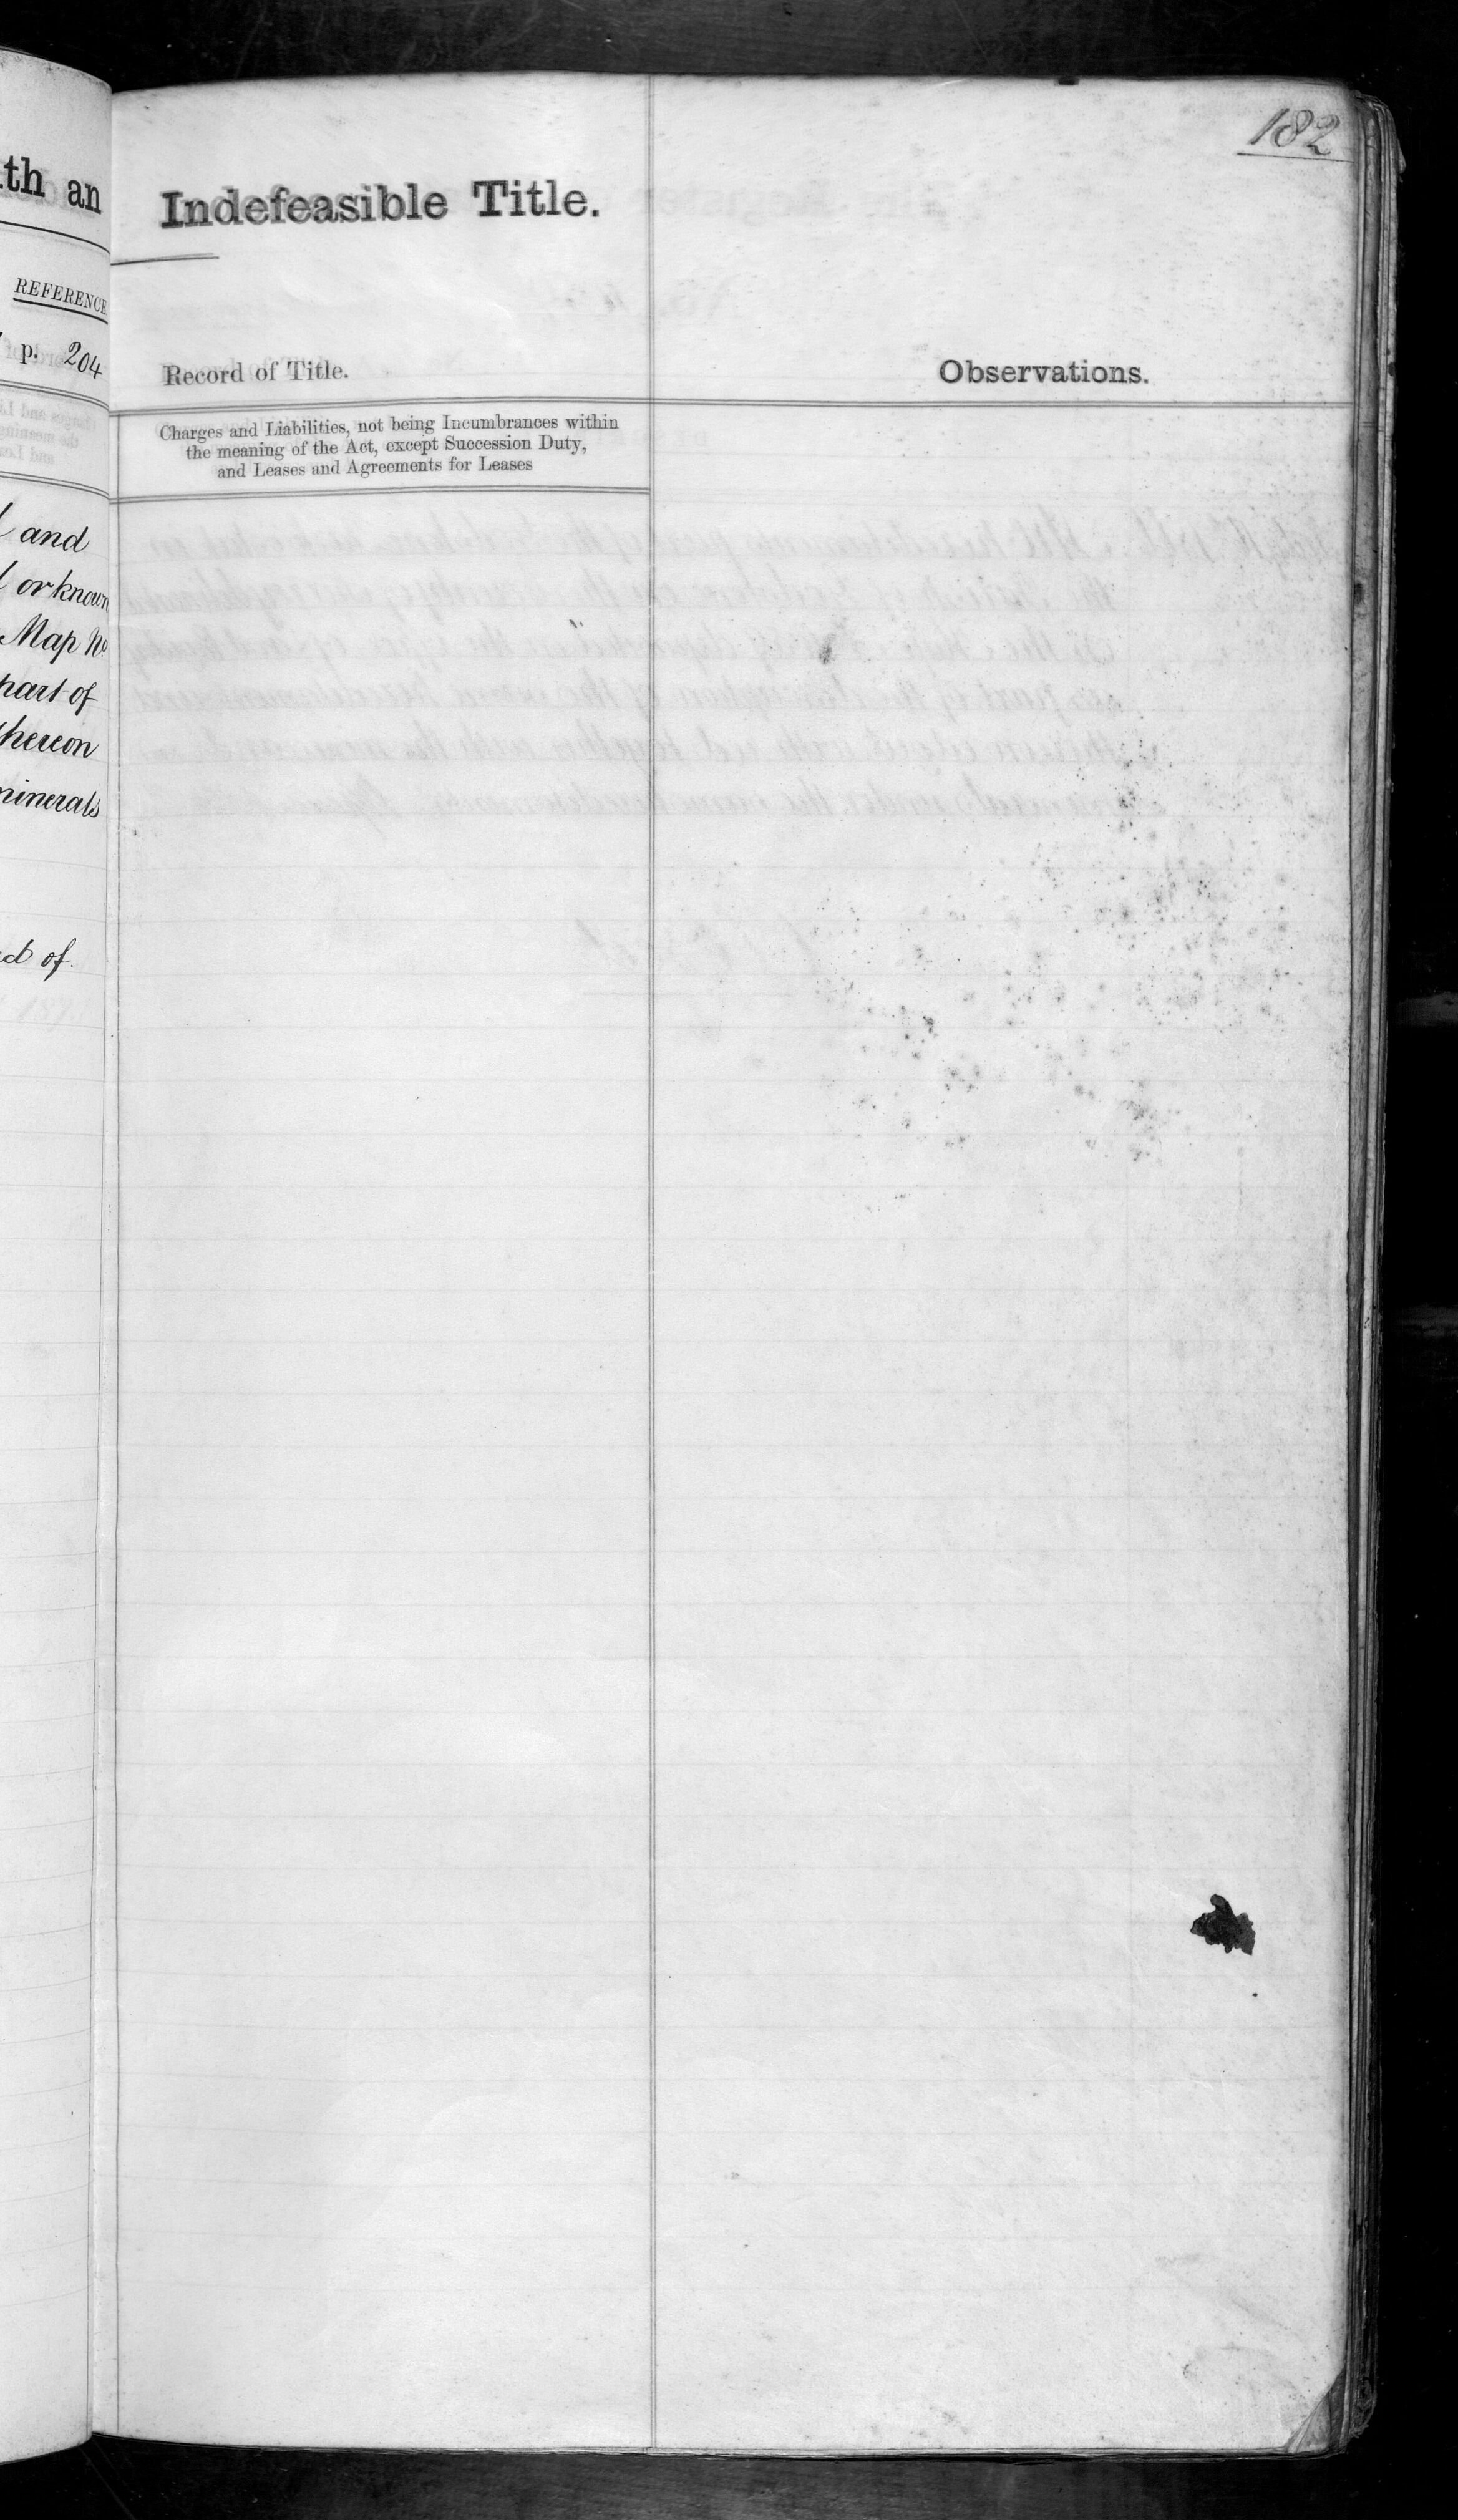 th an
REFERENCE
p. 204
and
or known
Map No
part of
thereon
minerals
d of.
182
Indefeasible Title.
Record of Title.
Observations.
Charges and Liabilities, not being Incumbrances within
the meaning of the Act, except Succession Duty,
and Leases and Agreements for Leases